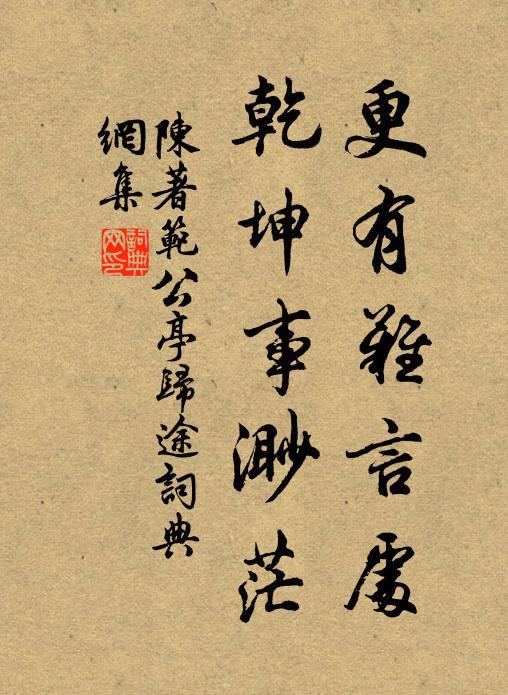 更有難言處
乾坤事渺茫
陳著範公亭歸途詞典
網集
詞典
网印